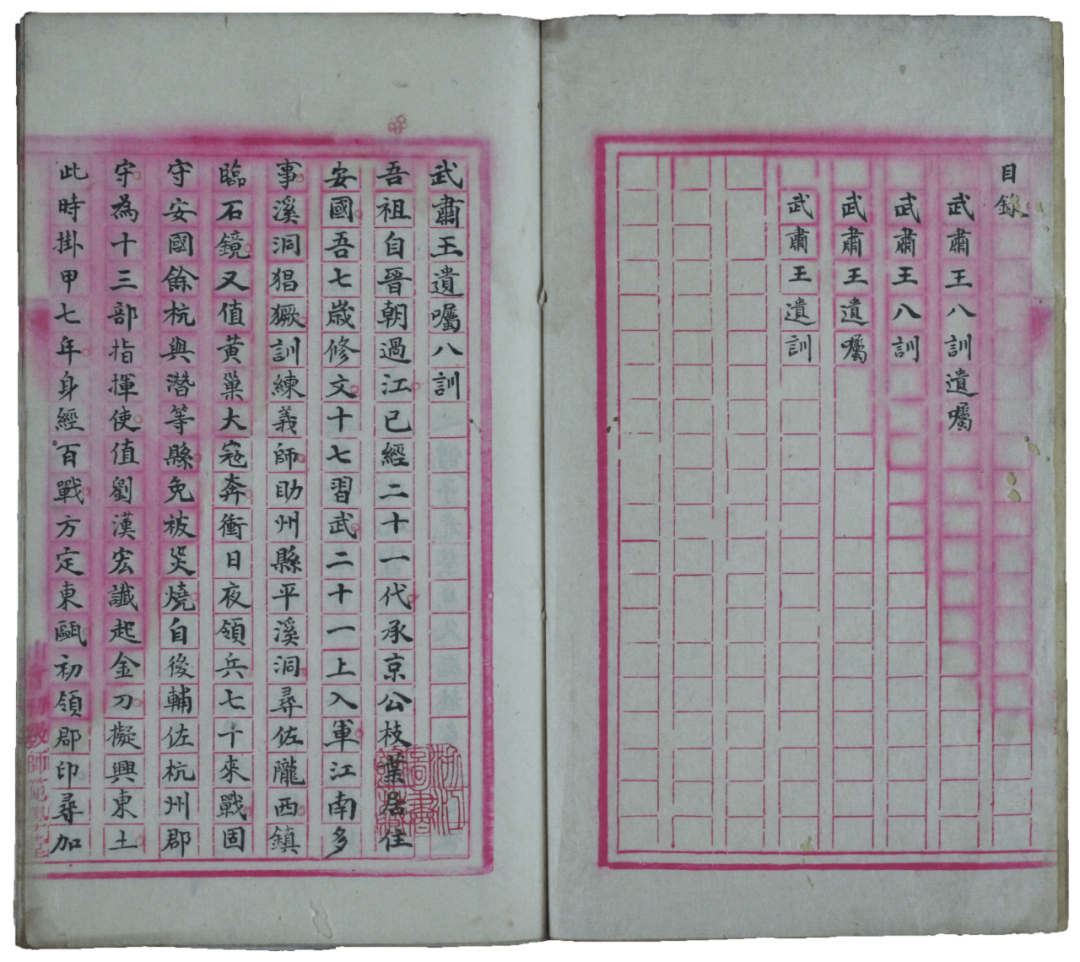 目錄
武肅王八訓遺囑
武肅王八訓
武肅王遺囑
武肅王遺訓
武肅王遺囑八訓
吾祖自晉朝過江已經二十一代承京公枝葉居住
安國吾七歲修文十七習武二十一上入軍江南多
事溪洞猖獗訓練義師助州縣平溪洞尋佐隴西鎮
臨石鏡又值黃巢大寇奔衝日夜領兵七十來戰固
守安國餘杭與潛等縣免被災燒自後輔佐杭州郡
守為十三部指揮使值劉漢宏讖起金刀擬興東土
此時掛甲七年身經百戰方定東甌初領郡印尋加